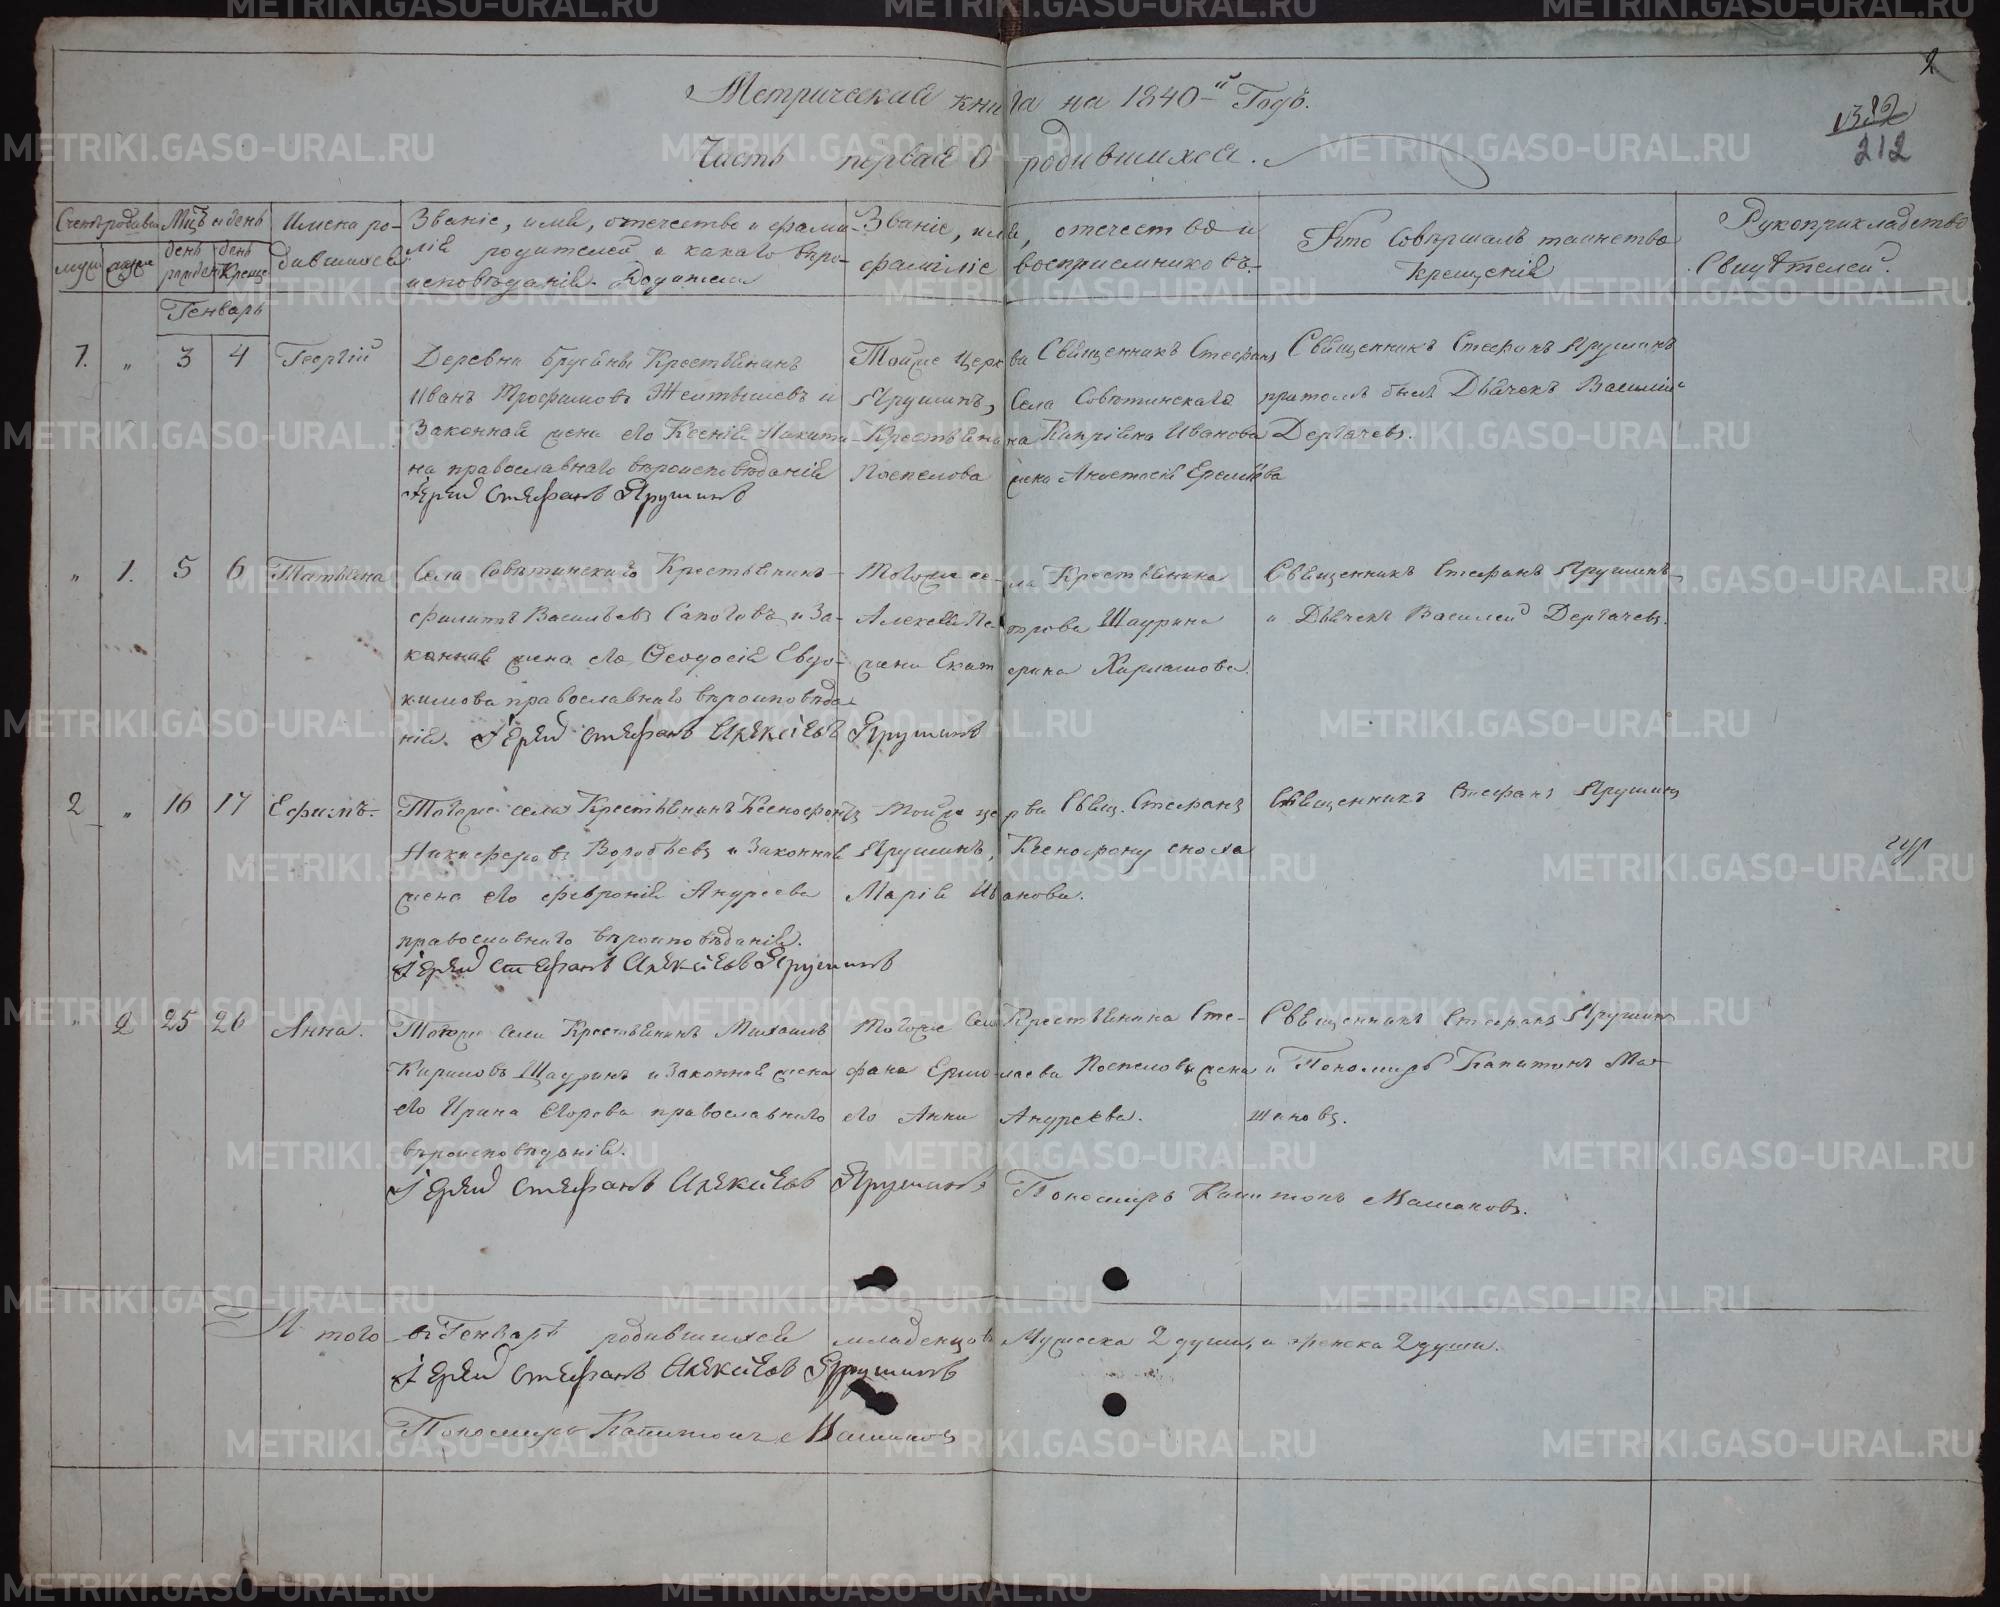 2
1382
212
Метрическая книга на 1840-й Годъ.
Часть первая О родившихся.
Счетъ родивши
Мцъ и день
Имена ро-
дившихся
Званіе, имя, отечество и фами-
лія родителей и какаго веро-
исповѣданія. Родители
Званіе, имя, отечество и
фамиліе воспріемниковъ.
Кто совершалъ таинство
Крещенія
Рукоприкладство
Свидѣтелей.
муж женск
день рожден
день Креще
Генварь
1. " 3 4 Георгій
Деревни Брусяны Крестьянинъ
Иванъ Трофимовъ Желтышевъ и
Законная жена его Ксенія Никити
на православнаго вѣроисповѣданія
Іерей Стефанъ Ярушинъ
Тойже Церкви Священникъ Стефанъ
Ярушинъ, Села Совѣтинскаго
Крестьянина Кипріяна Иванова
Поспелова жена Анастасія Еремѣева
Священникъ Стефанъ Ярушинъ
притомъ былъ Дьячекъ Василій
Дергачевъ.
" 1. 5 6 Татьяна
Села Совѣтинскаго Крестьянинъ
Филиппъ Васильевъ Сапоговъ и За-
конная жена его Ѳеодосія Евдо-
кимова православнаго вѣроиповѣда
нія. Іерей Стефанъ Алексіевъ Ярушинъ
Тогоже се-ла Крестьянина
Алексея Пе-трова Щаурина
жена Екатерина Харлампова.
Священникъ Стефанъ Ярушинъ
и Дьячекъ Василей Дергачевъ.
2 " 16 17 Ефимъ.
Тогоже села Крестьянинъ Ксенофонъ
Никифоровъ Воробьевъ и Законная
жена его Февронія Андреева
православнаго вѣроиповѣданія.
Іерей Стефанъ Алексіевъ Ярушинъ
Тойже церкви Свящ. Стефанъ
Ярушинъ, Ксенофону сноха
Марія Иванова.
Священникъ Стефанъ Ярушинъ
" 2 25 26 Анна.
Тогоже села Крестьянинъ Михаилъ
Кириловъ Щауринъ и Законная жена
его Ирина Егорова православнаго
вѣроисповѣданія.
Іерей Стефанъ Алексіевъ Ярушинъ
Тогоже Села Крестьянина Сте-
фана Ермолаева Поспелова жена
его Анна Андреева.
Священникъ Стефанъ Ярушинъ
и Пономарь Капитонъ Ма-
шановъ.
Пономарь Капитонъ Машановъ.
Итого въ Генварѣ родившихся младенцовъ Мужеска 2 души, и женска 2 души.
Іерей Стефанъ Алексіевъ Ярушинъ
Пономарь Капитонъ Машановъ
METRIKI.GASO-URAL.RU